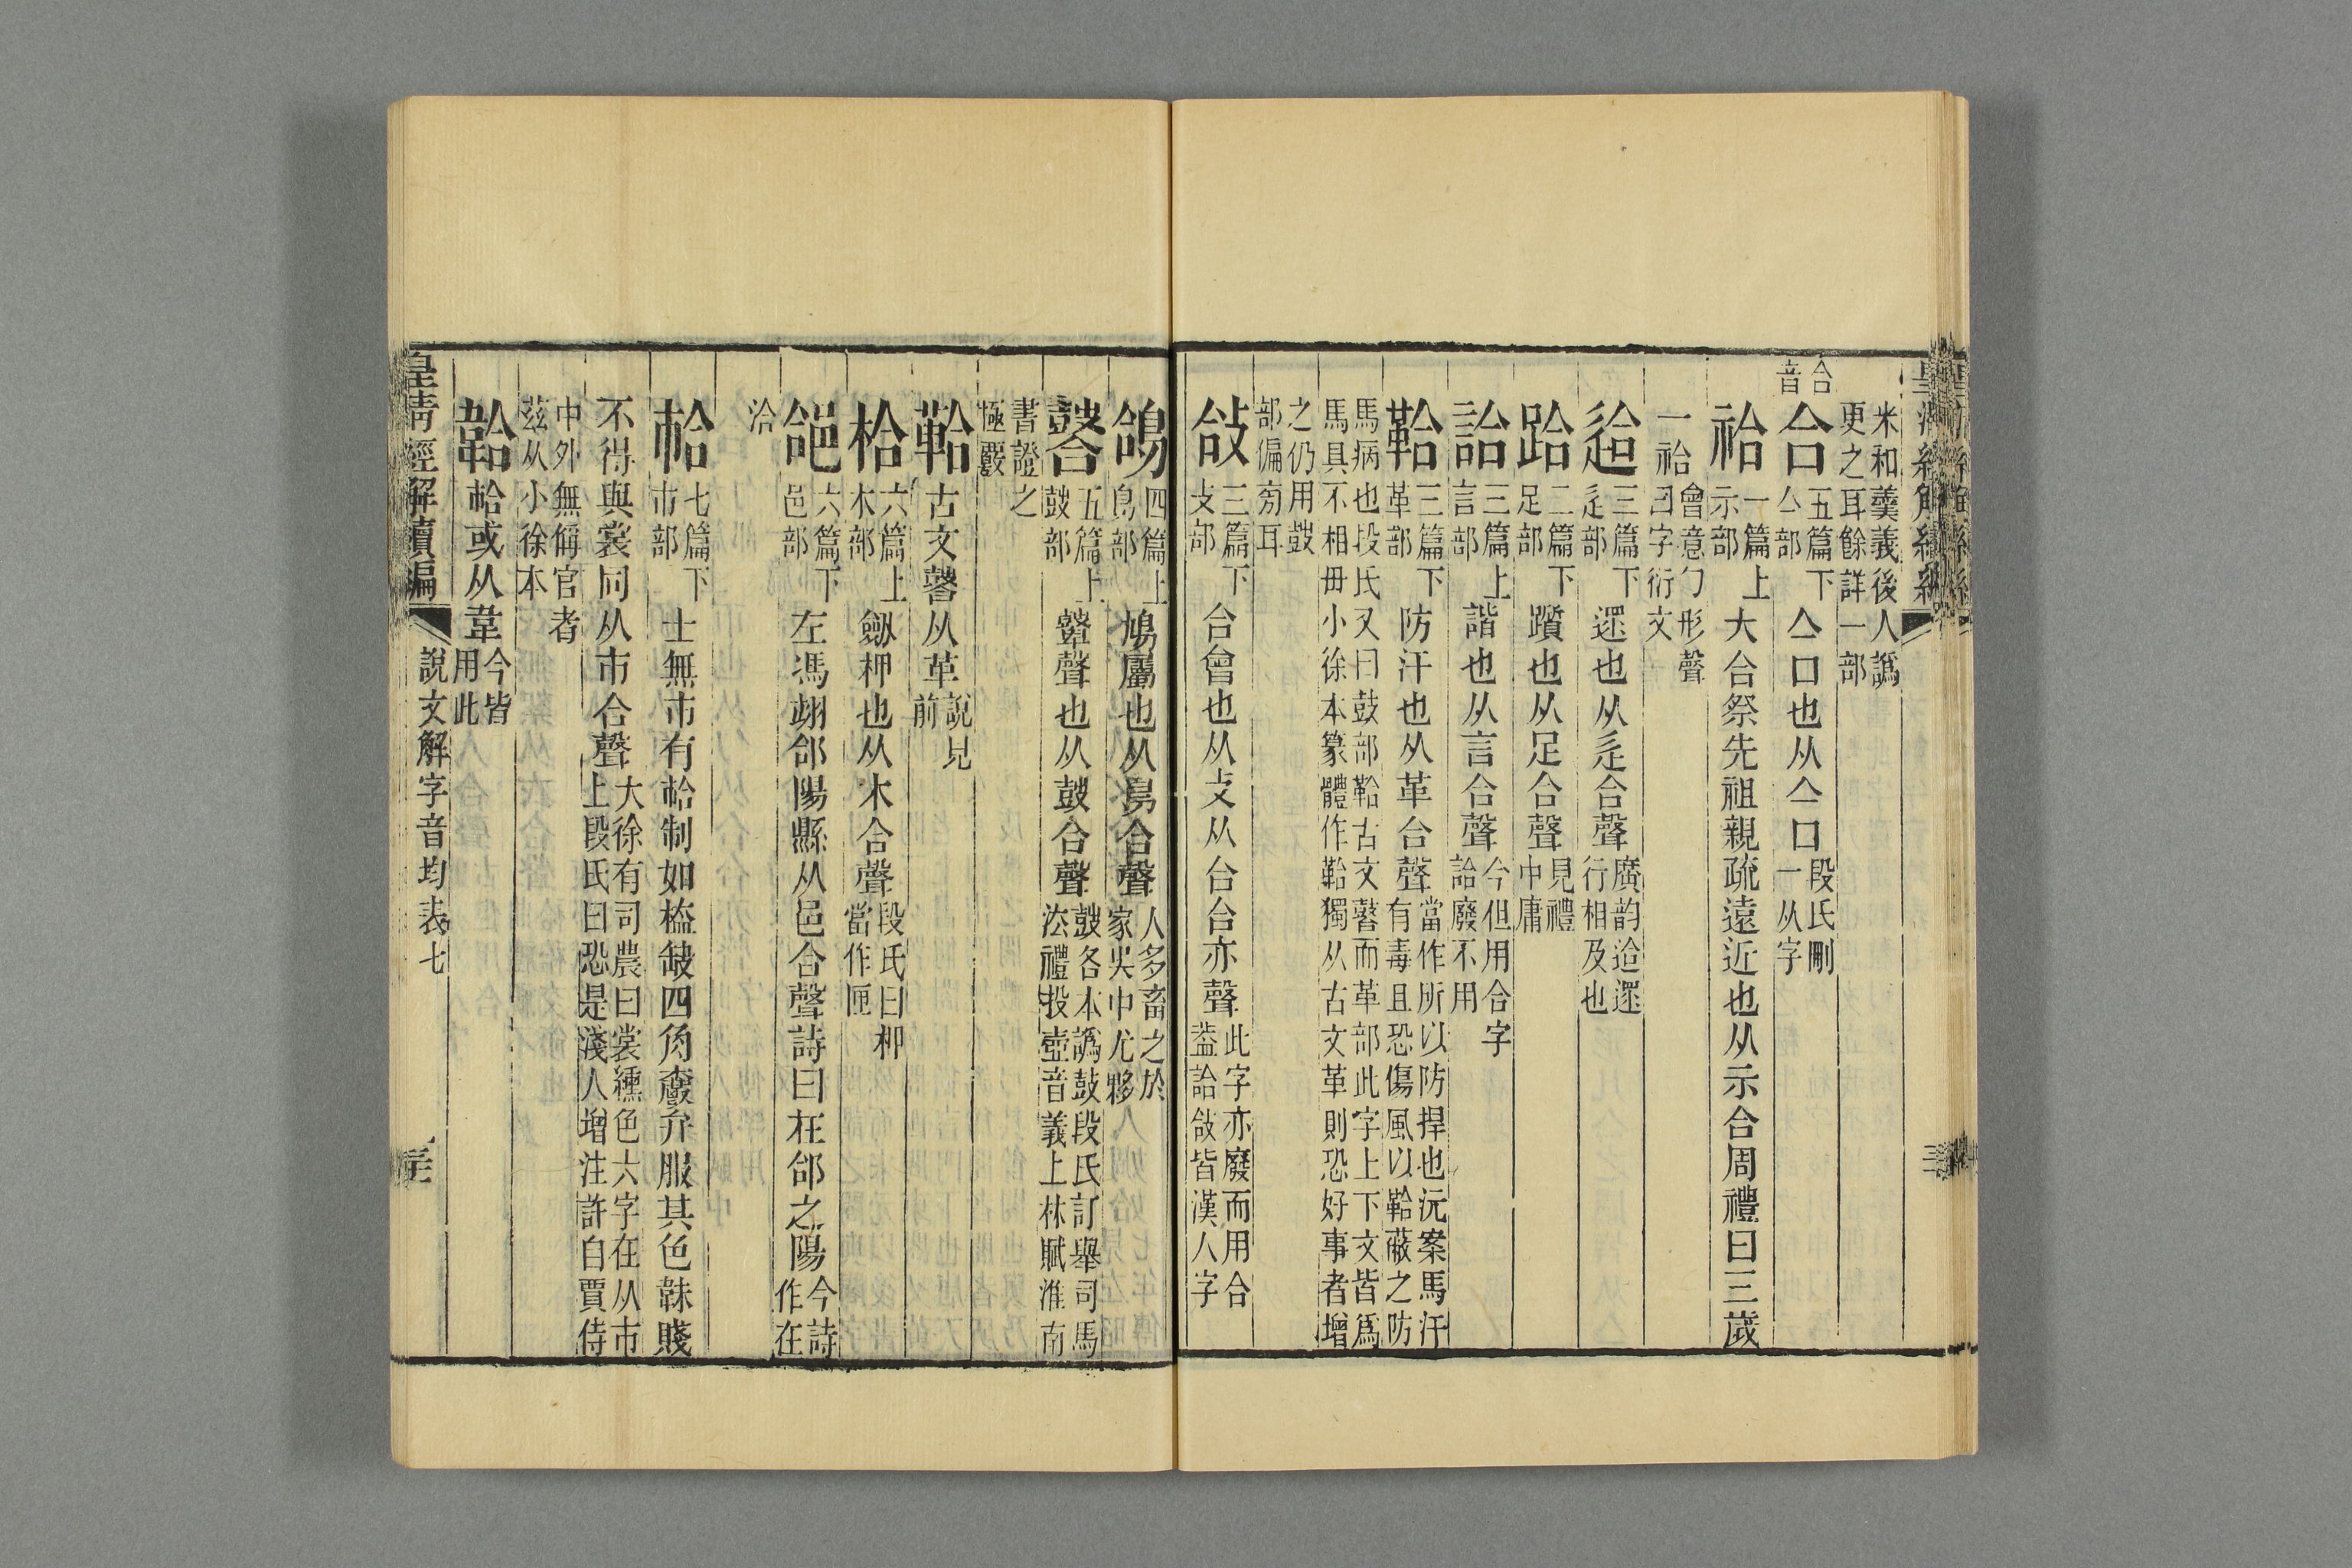 米和羹義後人譌
更之耳餘詳一部
合音
合五篇下亼部亼口也从亼口段氏刪一从字
祫一篇上示部大合祭先祖親疏遠近也从示合周禮曰三歲
一祫會意勹形聲曰字衍文
迨三篇下辵部遝也从辵合聲廣韵迨遝行相及也
跲二篇下足部躓也从足合聲見禮中庸
詥三篇上言部諧也从言合聲今但用合字詥廢不用
鞈三篇下革部防汗也从革合聲當作所以防捍也沅案馬汗有毒且恐傷風以鞈蔽之防
馬病也段氏又曰鼓部鞈古文鼛而革部此字上下文皆爲
馬具不相毌小徐本篆體作鞈獨从古文革則恐好事者增
之仍用鼓
部偏旁耳
敆三篇下攴部合會也从攴从合合亦聲此字亦廢而用合葢詥敆皆漢人字
鴿四篇上鳥部鳩屬也从鳥合聲人多畜之於家吳中尤夥
鼛五篇上鼓部鼙聲也从鼓合聲鼓各本譌鼓段氏訂舉司馬法禮投壺音義上林賦淮南
書證之
極覈
鞈古文鼛从革說見前
枱六篇上木部劒柙也从木合聲段氏曰柙當作匣
郃六篇下邑部左馮翊郃陽縣从邑合聲詩曰在郃之陽今詩作在
洽
帢七篇下巿部士無巿有帢制如榼缺四角爵弁服其色韎賤
不得與裳同从巿合聲大徐有司農曰裳纁色六字在从巿上段氏曰恐是淺人增注許自賈侍
中外無偁官者
茲从小徐本
韐帢或从韋今皆用此
皇淸經解續編
說文解字音均表七